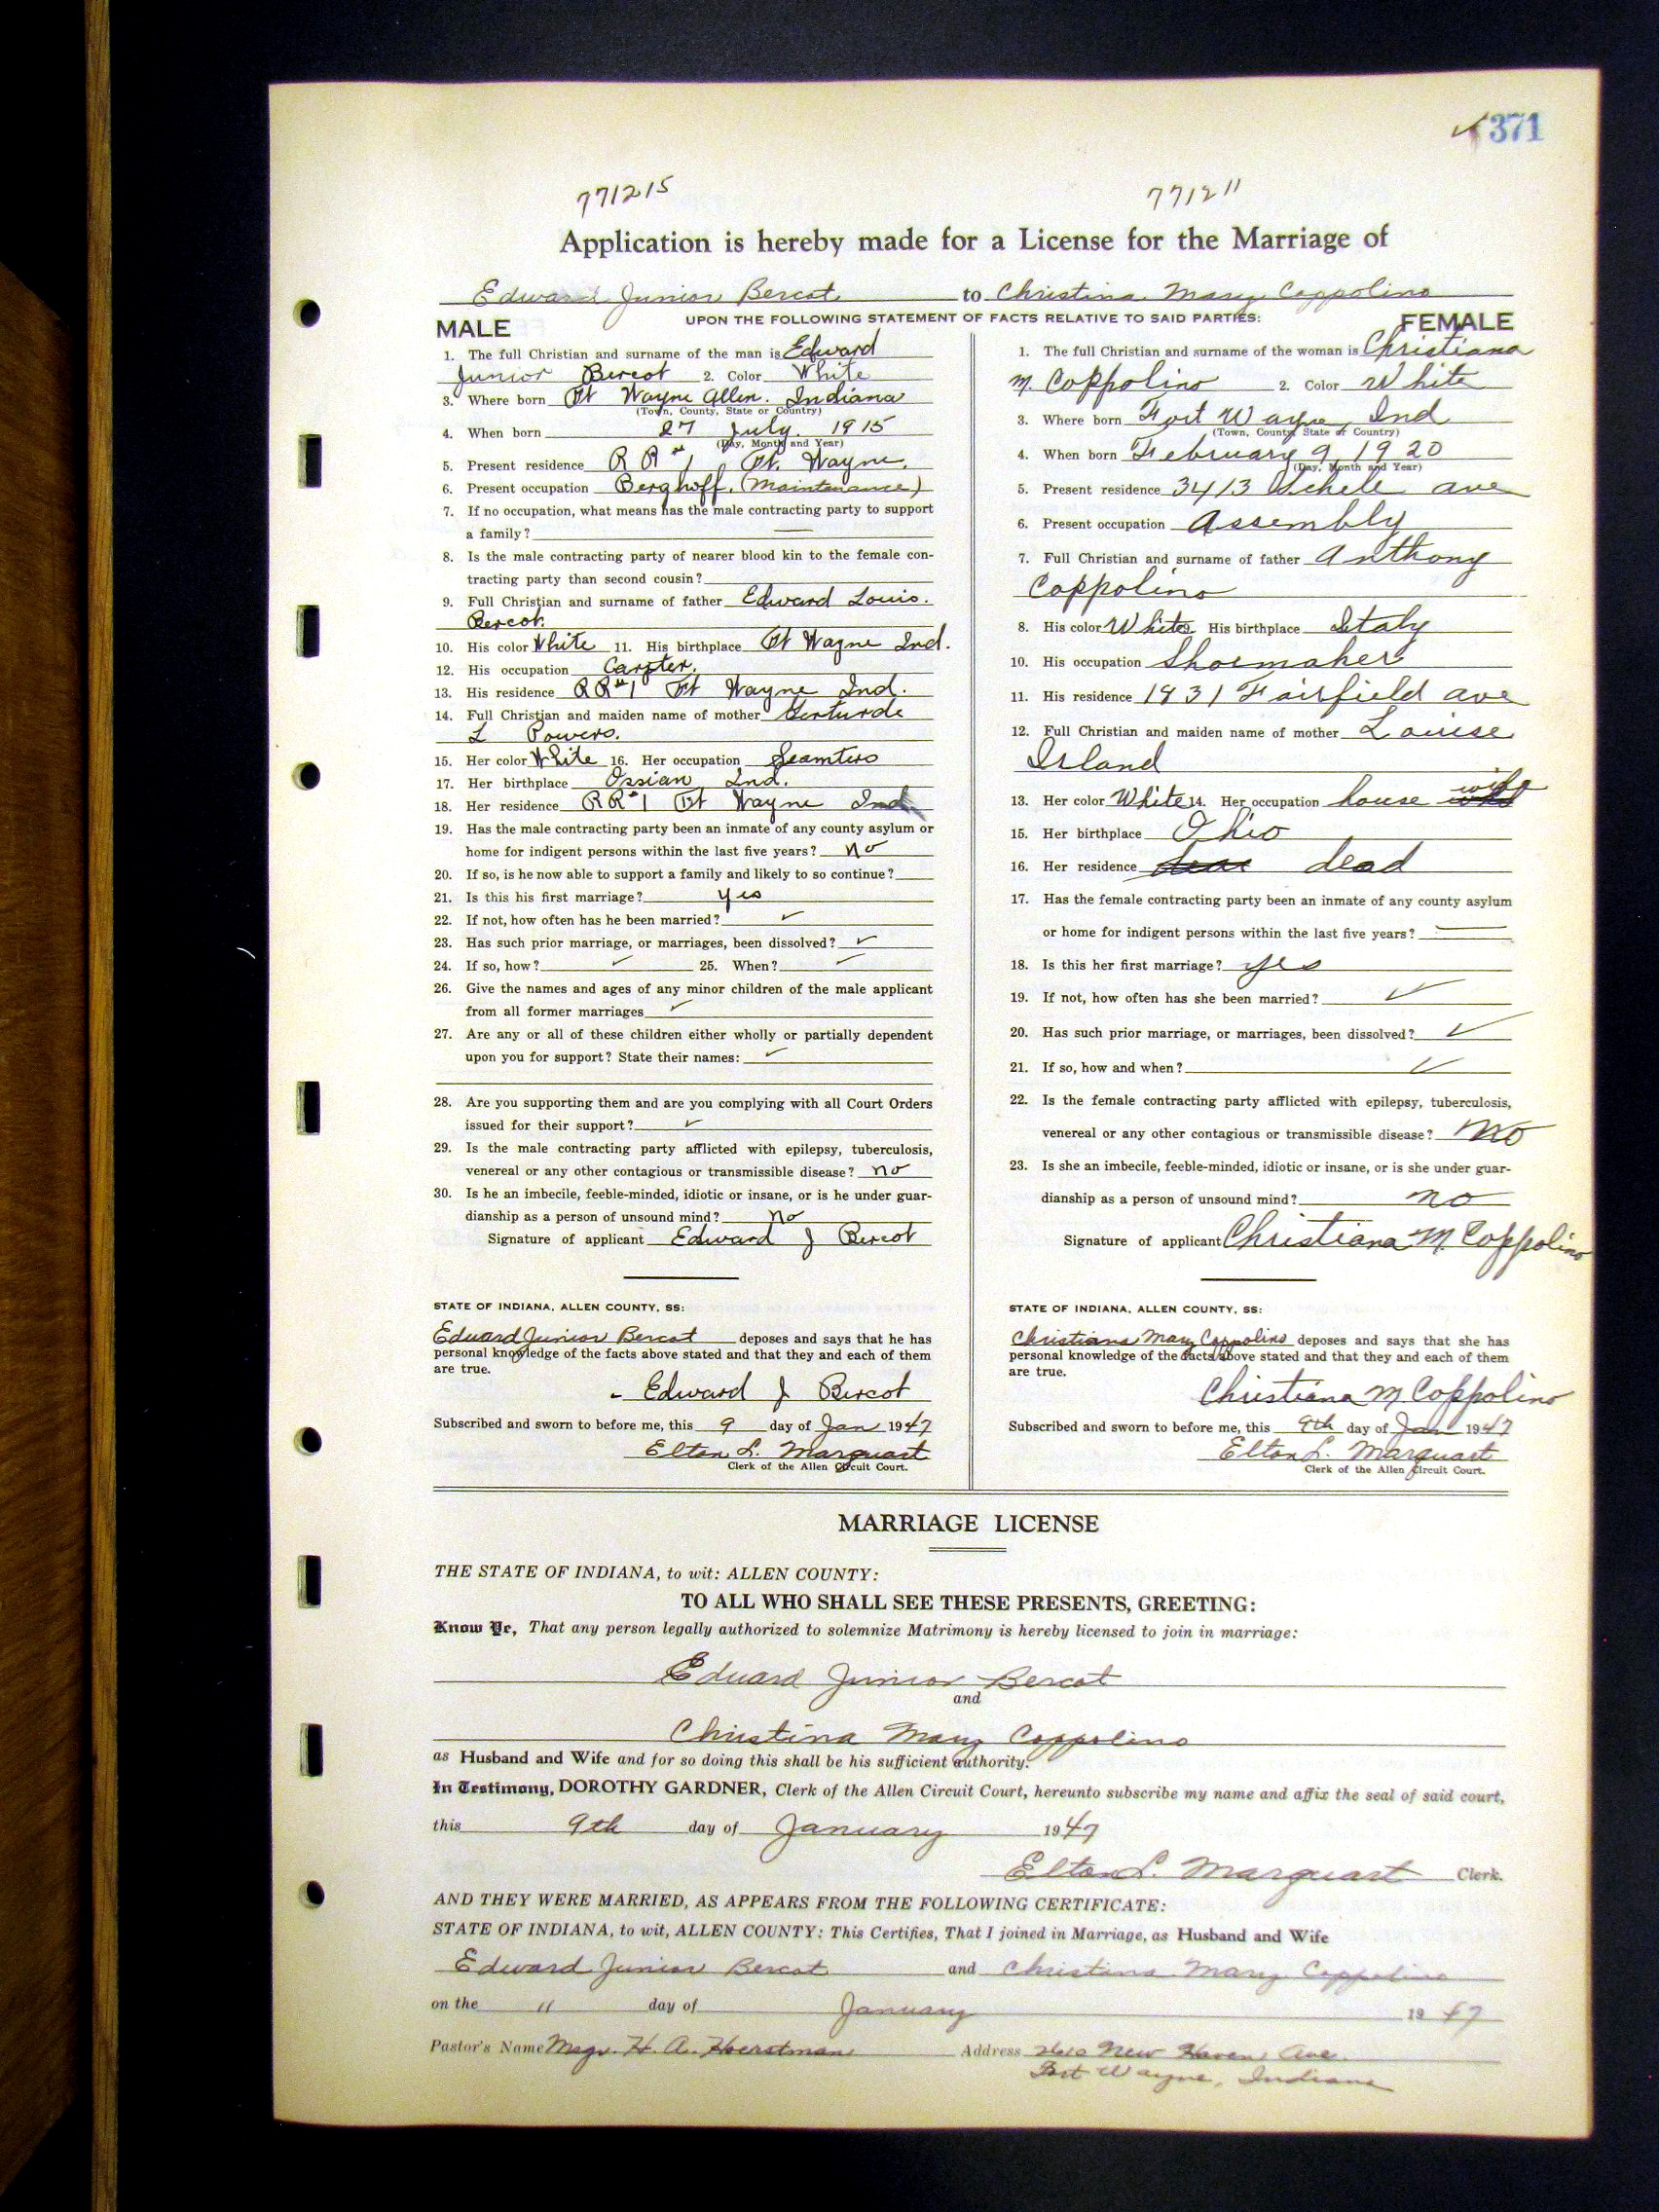 371
771215 7712 11
Application is hereby made for a License for the Marriage of
Edward Junior Bercot to Christina Mary Coppolino
UPON THE FOLLOWING STATEMENT OF FACTS RELATIVE TO SAID PARTIES:
MALE
1. The full Christian and surname of the man is Edward
Junior Bercot 2. Color White
3. Where born Ft Wayne Allen. Indiana
(Town, County, State or Country)
4. When born 27 July. 1915
(Day, Month and Year)
5. Present residence R R #1 Ft. Wayne.
6. Present occupation Berghoff. (Maintenance)
7. If no occupation, what means has the male contracting party to support
a family?
8. Is the male contracting party of nearer blood kin to the female con-
tracting party than second cousin?
9. Full Christian and surname of father Edward Louis.
Bercot.
10. His color White 11. His birthplace Ft Wayne Ind.
12. His occupation Carpter.
13. His residence RR#1 Ft Wayne Ind.
14. Full Christian and maiden name of mother Gerturde
L Powers.
15. Her color White 16. Her occupation Seamtiss
17. Her birthplace Ossian Ind.
18. Her residence RR#1 Ft Wayne Ind.
19. Has the male contracting party been an inmate of any county asylum or
home for indigent persons within the last five years? No
20. If so, is he now able to support a family and likely to so continue?
21. Is this his first marriage? yes
22. If not, how often has he been married? ✓
23. Has such prior marriage, or marriages, been dissolved? ✓
24. If so, how? ✓ 25. When? ✓
26. Give the names and ages of any minor children of the male applicant
from all former marriages ✓
27. Are any or all of these children either wholly or partially dependent
upon you for support? State their names: ✓
28. Are you supporting them and are you complying with all Court Orders
issued for their support? ✓
29. Is the male contracting party afflicted with epilepsy, tuberculosis,
venereal or any other contagious or transmissible disease? no
30. Is he an imbecile, feeble-minded, idiotic or insane, or is he under guar-
dianship as a person of unsound mind? No
Signature of applicant Edward J Bercot
STATE OF INDIANA, ALLEN COUNTY, SS:
Edward Junior Bercot deposes and says that he has
personal knowledge of the facts above stated and that they and each of them
are true.
Edward J Bercot
Subscribed and sworn to before me, this 9 day of Jan 1947
Elton L. Marquart
Clerk of the Allen Circuit Court.
FEMALE
1. The full Christian and surname of the woman is Christiana
M. Coppolino 2. Color White
3. Where born Fort Wayne, Ind
(Town, County State or Country)
4. When born February 9, 1920
(Day, Month and Year)
5. Present residence 3413 Schele ave
6. Present occupation Assembly
7. Full Christian and surname of father Anthony
Coppolino
8. His color White 9. His birthplace Italy
10. His occupation Shoemaker
11. His residence 1931 Fairfield ave
12. Full Christian and maiden name of mother Louise
Island
13. Her color White 14. Her occupation house wife
15. Her birthplace Ohio
16. Her residence dead
17. Has the female contracting party been an inmate of any county asylum
or home for indigent persons within the last five years?
18. Is this her first marriage? yes
19. If not, how often has she been married? ✓
20. Has such prior marriage, or marriages, been dissolved? ✓
21. If so, how and when? ✓
22. Is the female contracting party afflicted with epilepsy, tuberculosis,
venereal or any other contagious or transmissible disease? no
23. Is she an imbecile, feeble-minded, idiotic or insane, or is she under guar-
dianship as a person of unsound mind? no
Signature of applicant Christiana M. Coppolino
STATE OF INDIANA, ALLEN COUNTY, SS:
Christiana Mary Coppolino deposes and says that she has
personal knowledge of the facts above stated and that they and each of them
are true.
Christiana M. Coppolino
Subscribed and sworn to before me, this 9th day of Jan 1947
Elton L. Marquart
Clerk of the Allen Circuit Court.
MARRIAGE LICENSE
THE STATE OF INDIANA, to wit: ALLEN COUNTY:
TO ALL WHO SHALL SEE THESE PRESENTS, GREETING:
Know Ye, That any person legally authorized to solemnize Matrimony is hereby licensed to join in marriage:
Edward Junior Bercot
and
Christina Mary Coppolino
as Husband and Wife and for so doing this shall be his sufficient authority.
In Testimony, DOROTHY GARDNER, Clerk of the Allen Circuit Court, hereunto subscribe my name and affix the seal of said court,
this 9th day of January 1947
Elton L. Marquart Clerk.
AND THEY WERE MARRIED, AS APPEARS FROM THE FOLLOWING CERTIFICATE:
STATE OF INDIANA, to wit, ALLEN COUNTY: This Certifies, That I joined in Marriage, as Husband and Wife
Edward Junior Bercot and Christina Mary Coppolino
on the 11 day of January 1947
Pastor's Name Msgr. H. A. Hoerstman Address 2610 New Haven Ave.
Fort Wayne, Indiana